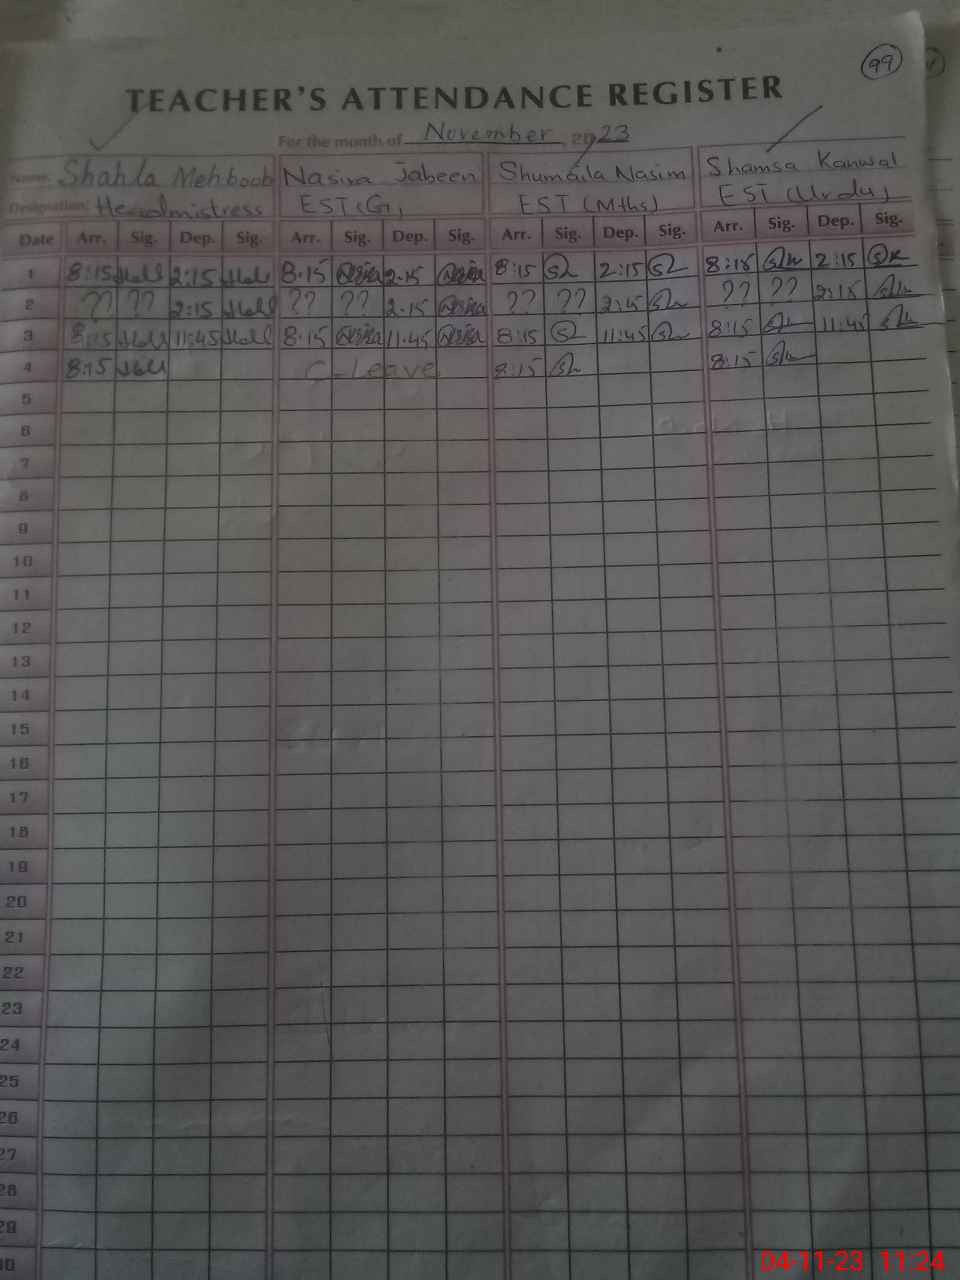 99
TEACHER'S ATTENDANCE REGISTER
For the month of November, 2023
Name: Shahla Mehboob Nasira Jabeen Shumaila Nasim Shamsa Kanwal
Designation: Headmistress EST (G) EST (Mths) EST (Urdu)
Date Arr. Sig. Dep. Sig. Arr. Sig. Dep. Sig. Arr. Sig. Dep. Sig. Arr. Sig. Dep. Sig.
1 8:15 2:15 8.15 2.15 8:15 2:15 8:15 2:15
2 ?? ?? 2:15 ?? ?? 2.15 ?? ?? 2:15 ?? ?? 2:15
3 8:15 11:45 8.15 11.45 8:15 11:45 8:15 11:45
4 8:15 C-Leave 8:15 8:15
5
6
7
8
9
10
11
12
13
14
15
16
17
18
19
20
21
22
23
24
25
26
27
28
29
30
04-11-23 11:24